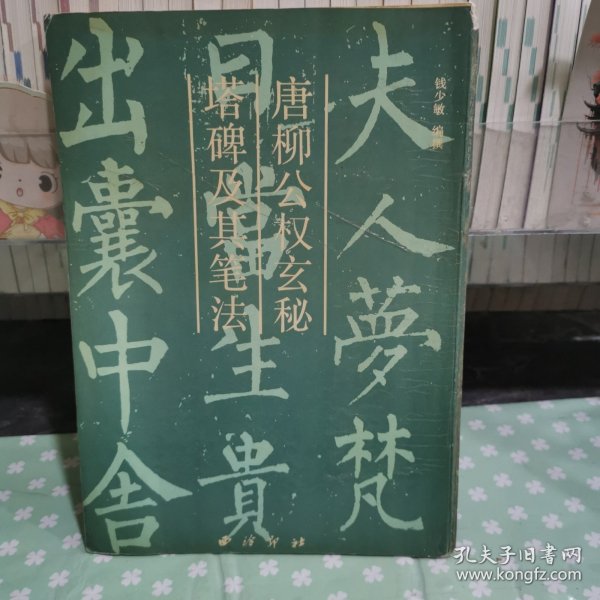 唐柳公权玄秘
塔碑及其笔法
钱少敏 编撰
夫人夢梵
曰當生貴
出囊中舍
西泠印社
孔夫子旧书网
www.kongfz.com